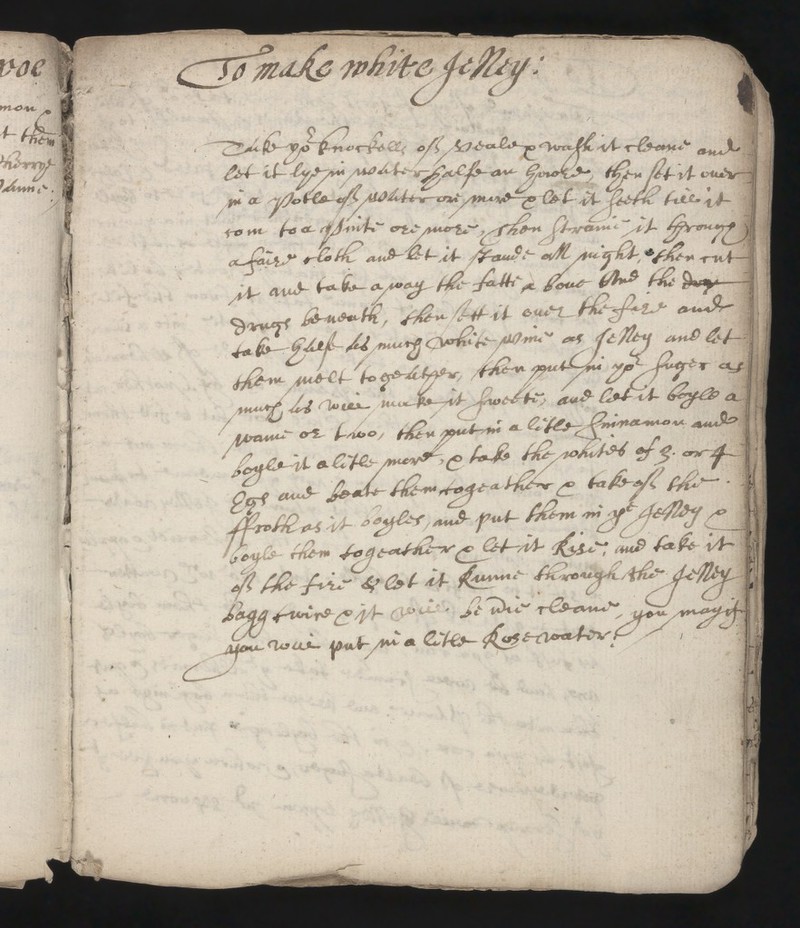 voe
mon &
t them
sherrye
anne:
To make white Jelley:
Take ye knockells off Veale & wash it cleane and
let it lye in water halfe an howre, then set it over
in a Potle off water ore more & let it seeth till it
com to a Pinte ore more, then straine it through
a faire cloth and let it stande all night, then cut
it and take a way the fatte a bove And the
drugs beneath, then sett it over the fire and
take halfe as much white wine as Jelley and let
them melt togeather, then put in ye suger as
much as will make it sweete, and let it boyle a
waime or two, then put in a litle Sinnamon and
boyle it a litle more, & take the whites of 3. or 4
Egs and beate them togeather & take off the
ffroth as it boyles, and put them in ye Jelley &
boyle them togeather & let it Rise, and take it
off the fire & let it Runne through the Jelley
bagg twice & it will be cleane, you may if
you will put in a litle Rose water.